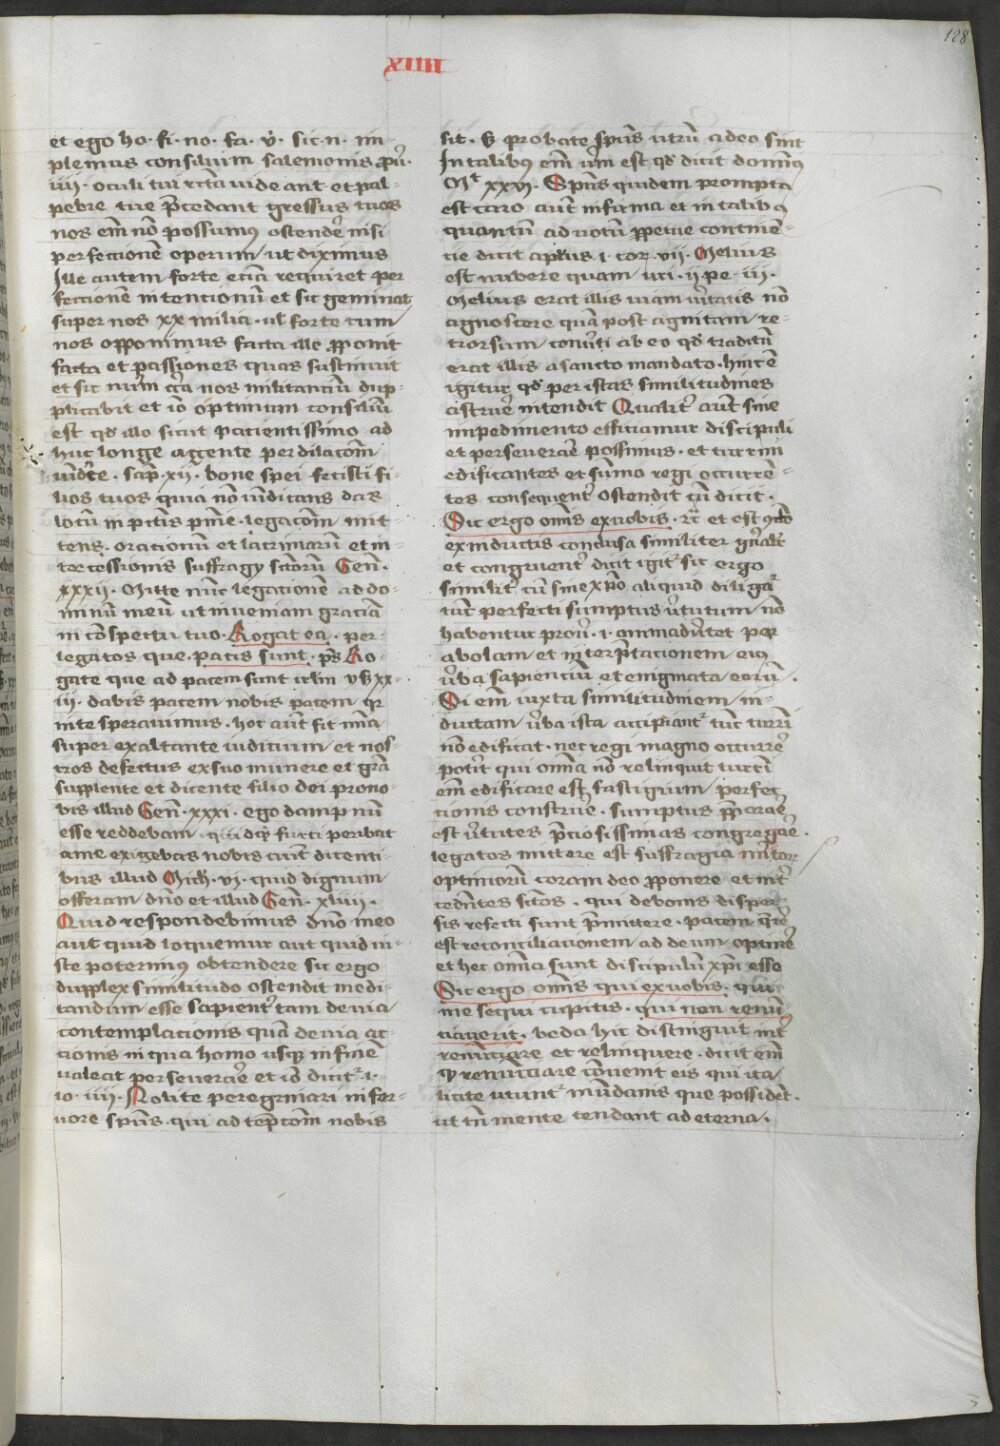 128
xiiii
et ego ho. fi. no. fa. v̓. sic. n. im-
plemus consilium salemonis ꝓũ.
iiii. oculi tui rc̃ta uideant et pal-
pebre tue p̃cedant gressus tuos
nos em̃ nõ possumus ostendẽ nisi
perfectionẽ operum ut diximus
Ille autem forte eciã requiret per
fectionẽ intencionũ et sic geminat
super nos xx milia. ul̃ forte cum
nos opponimus facta ille ꝓponit
facta et passiones quas sustinuit
et sic nũm cc̃a nos militanciũ dup-
plicabit et iõ optimum consiliũ
est qđ illo sicut pacientissimo ad
huc longe agente per dilacõm
uidẽte. sap̃. xii. bone spei fecisti fi-
lios tuos quia nõ iudicans das
locũ in pctĩs pnĩe. legacõm mit-
tens. orationũ et lacrimarũ et in-
tercessionis suffragy sctõrũ Geñ.
xxxii. Mitte nũc legationẽ ad do-
minũ meũ ut inueniam graciã
in cõspectu tuo. Rogat ea. per
legatos que. pacis sunt. pš Ro-
gate que ad pacem sunt irl̃m ys̃ xx-
iii. dabis pacem nobis pacem qr
in te sperauimus. hoc aũt fit mia
super exaltante iudicium et nos-
tros defectus ex suo munere et grã
supplente et dicente filio dei prono-
bis illud Geñ. xxxi. ego dampnũ
esse reddebam. qiꝺꝗ̃ furti peribat
ame exigebas nobis aũt dicenti-
bus illud Mich̃. vi. quid dignum
offeram dño et illud Geñ. xliiii.
Quid respondebimus dño meo
aut quid loquemur aut quid iu-
ste poterimus obtendere sic ergo
dupplex similitudo ostendit medi-
tandum esse sapient̃ tam de uia
contemplacionis quã de uia ac-
cionis in qua homo usqꝫ in finẽ
ualeat perseueraẽ et iõ dicit̃. i.
io. iiii. Nolite peregrinari in fer-
uore spũs. qui ad tẽptacõm nobis
sit. ꝟ probate spũs utrũ a deo sint
In talibꝫ em̃ uẽm est qđ dicit dominꝫ
Mt̃ xxvi. Spũs quidem promptus
est caro aũt infirma et in talibꝫ
quantũ ad uotũ ꝑpetue continẽ-
cie dicit apl̃us. i. cor. vii. Melius
est nubere quam uri. ii. pe. iii.
Melius erat illis uiam ũitatis nõ
agnoscere quã post agnitam re-
trorsum conũti ab eo qđ traditũ
erat illis a sancto mandato. hinc ẽ
igitur qđ per istas similitudines
astruẽ intendit Qualit̃ aũt sine
impedimento efficiamur discipuli
et perseueraẽ possimus. et turrim
edificantes et sũmo regi occurrẽ-
tes consequent̃ ostendit cũ dicit.
Sic ergo om̃is ex uobis. rc̃ et est 9clo
ex inductis conclusa similiter gñalit̃
et congruent̃ dicit igit̃ sic ergo
similit̃ cũ sine xp̃o aliquid diligat̃
nũc perfecti sumptus ũtutum nõ
habentur proũ. i. animadũtet par
abolam et interp̃tationem eiꝫ
ũba sapienciũ et enigmata eorũ.
Si em̃ iuxta similitudinem in-
ductam ũba ista accipiant̃ tũc turrĩ
nõ edificat. nec regi magno occurrẽ
potit̃ qui omĩa nõ relinquit turrĩ
em̃ edificare est fastigium perfec
tionis construẽ. sumptus p̃paraẽ
est ũtutes p̃ciosissimas congregaẽ.
legatos mittere est suffragia mẽitor
optimorũ coram deo ꝓponere et int̃
cedẽtes sctõs. qui de bonis disper-
sis refecti sunt p̃mittere. pacem q̃rẽ
est reconciliationem ad deum optinẽ
et hec omĩa sunt discipulũ xp̃i esse
Sic ergo om̃is qui ex uobis. qui
me sequi cupitis. qui non renũ-
ciauerit. beda hic distinguit int̃
renũciare et relinquere. dicit em̃
ꝙ renũciare cõuenit eis qui ita
licite utunt̃ mũdanis que possidẽt.
ut tñ mente tendant ad eterna.